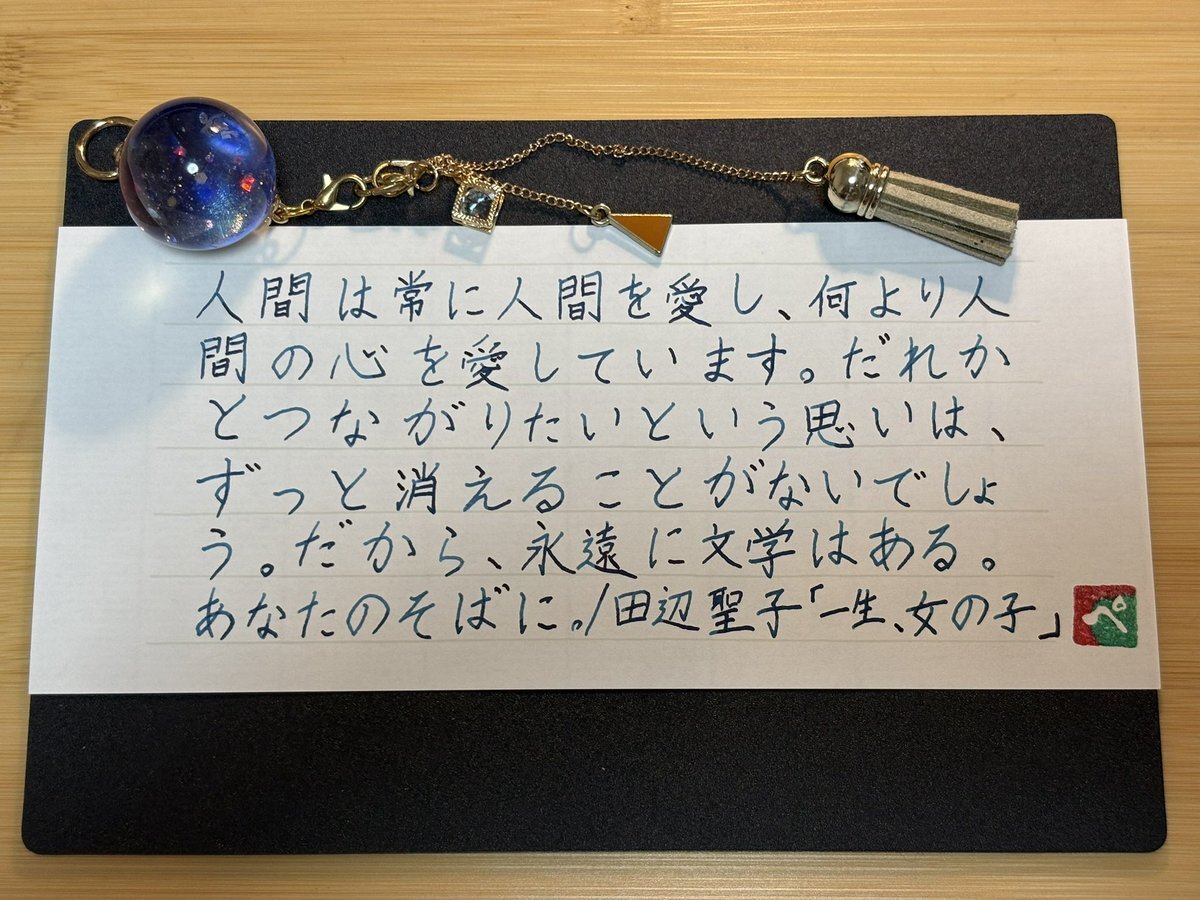 人間は常に人間を愛し、何より人
間の心を愛しています。だれか
とつながりたいという思いは、
ずっと消えることがないでしょ
う。だから、永遠に文学はある。
あなたのそばに。/田辺聖子「一生、女の子」
ペ